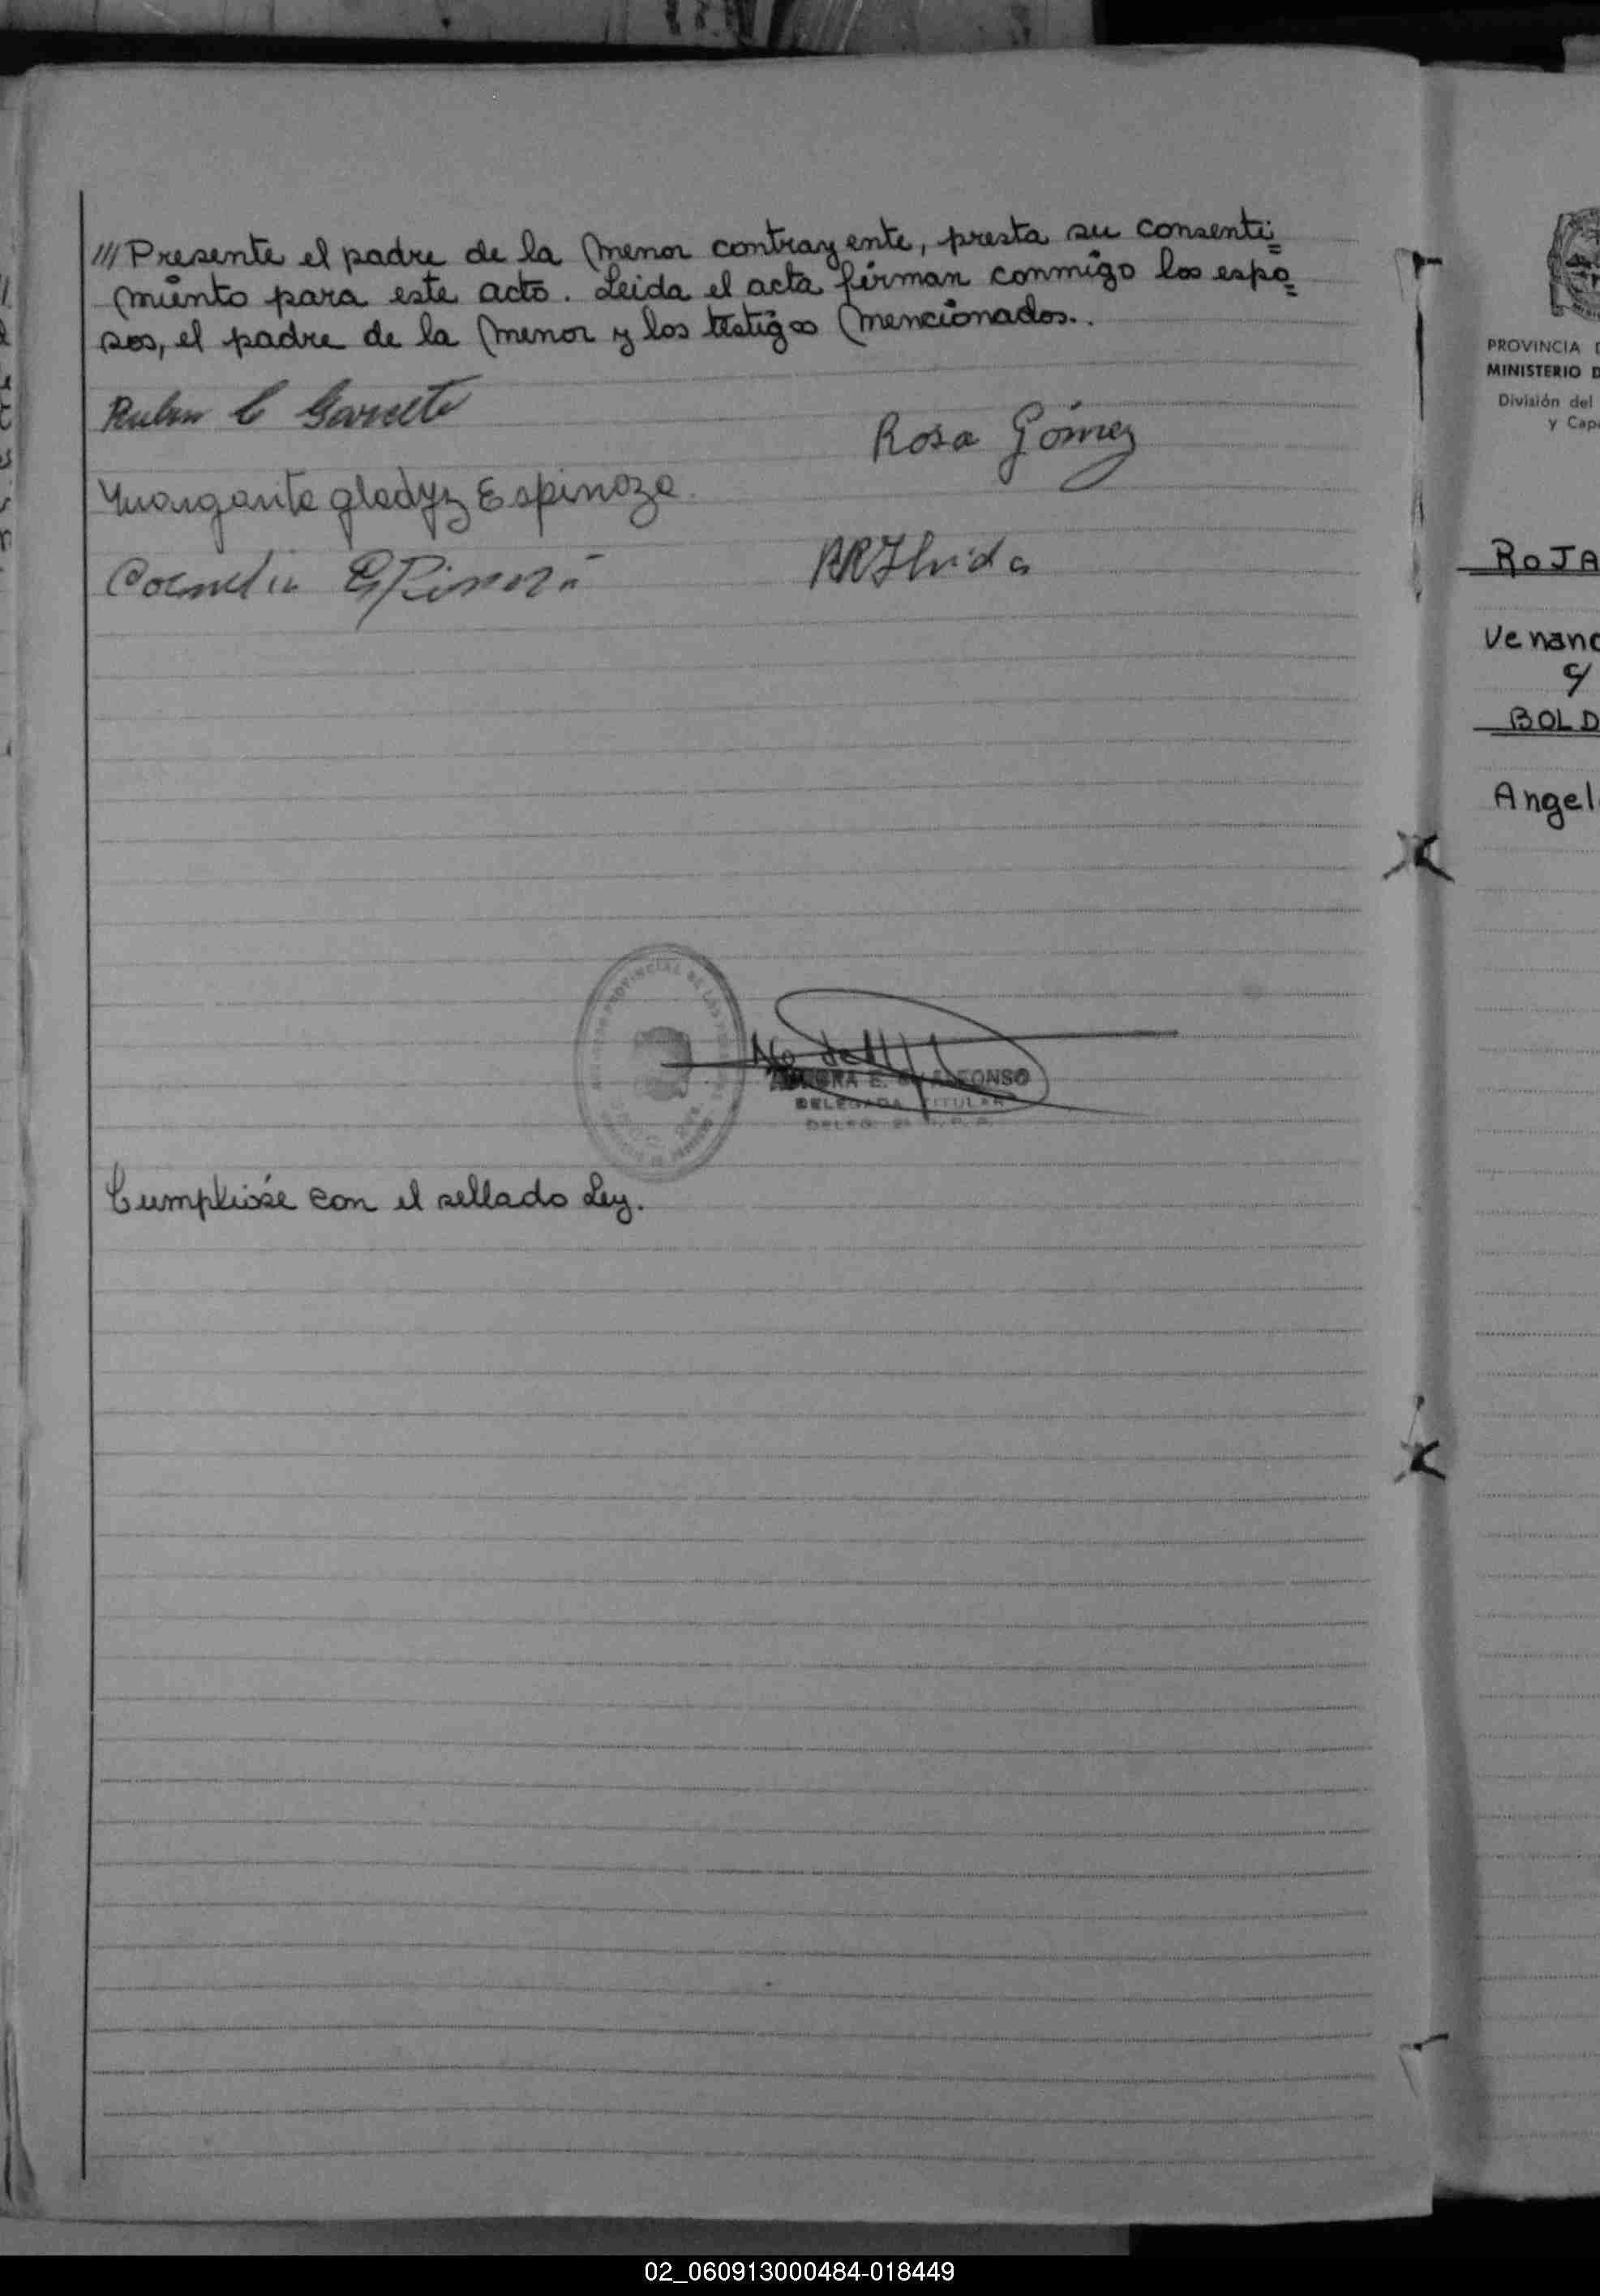 /// Presente el padre de la menor contrayente, presta su consenti=
miento para este acto. Leida el acta firman conmigo los espo=
sos, el padre de la menor y los testigos mencionados..
Ruben C Garcete
Rosa Gómez
Margarita gladyz Espinoza
Cornelio Espinoza
PROVINCIAL DE LAS
E. ALFONSO
DELEGADA TITULAR
DELEG.
Cumplióse con el sellado Ley.
PROVINCIA D
MINISTERIO D
División del
y Cap
ROJA
Venanc
c/
BOLD
Angel
02_060913000484-018449